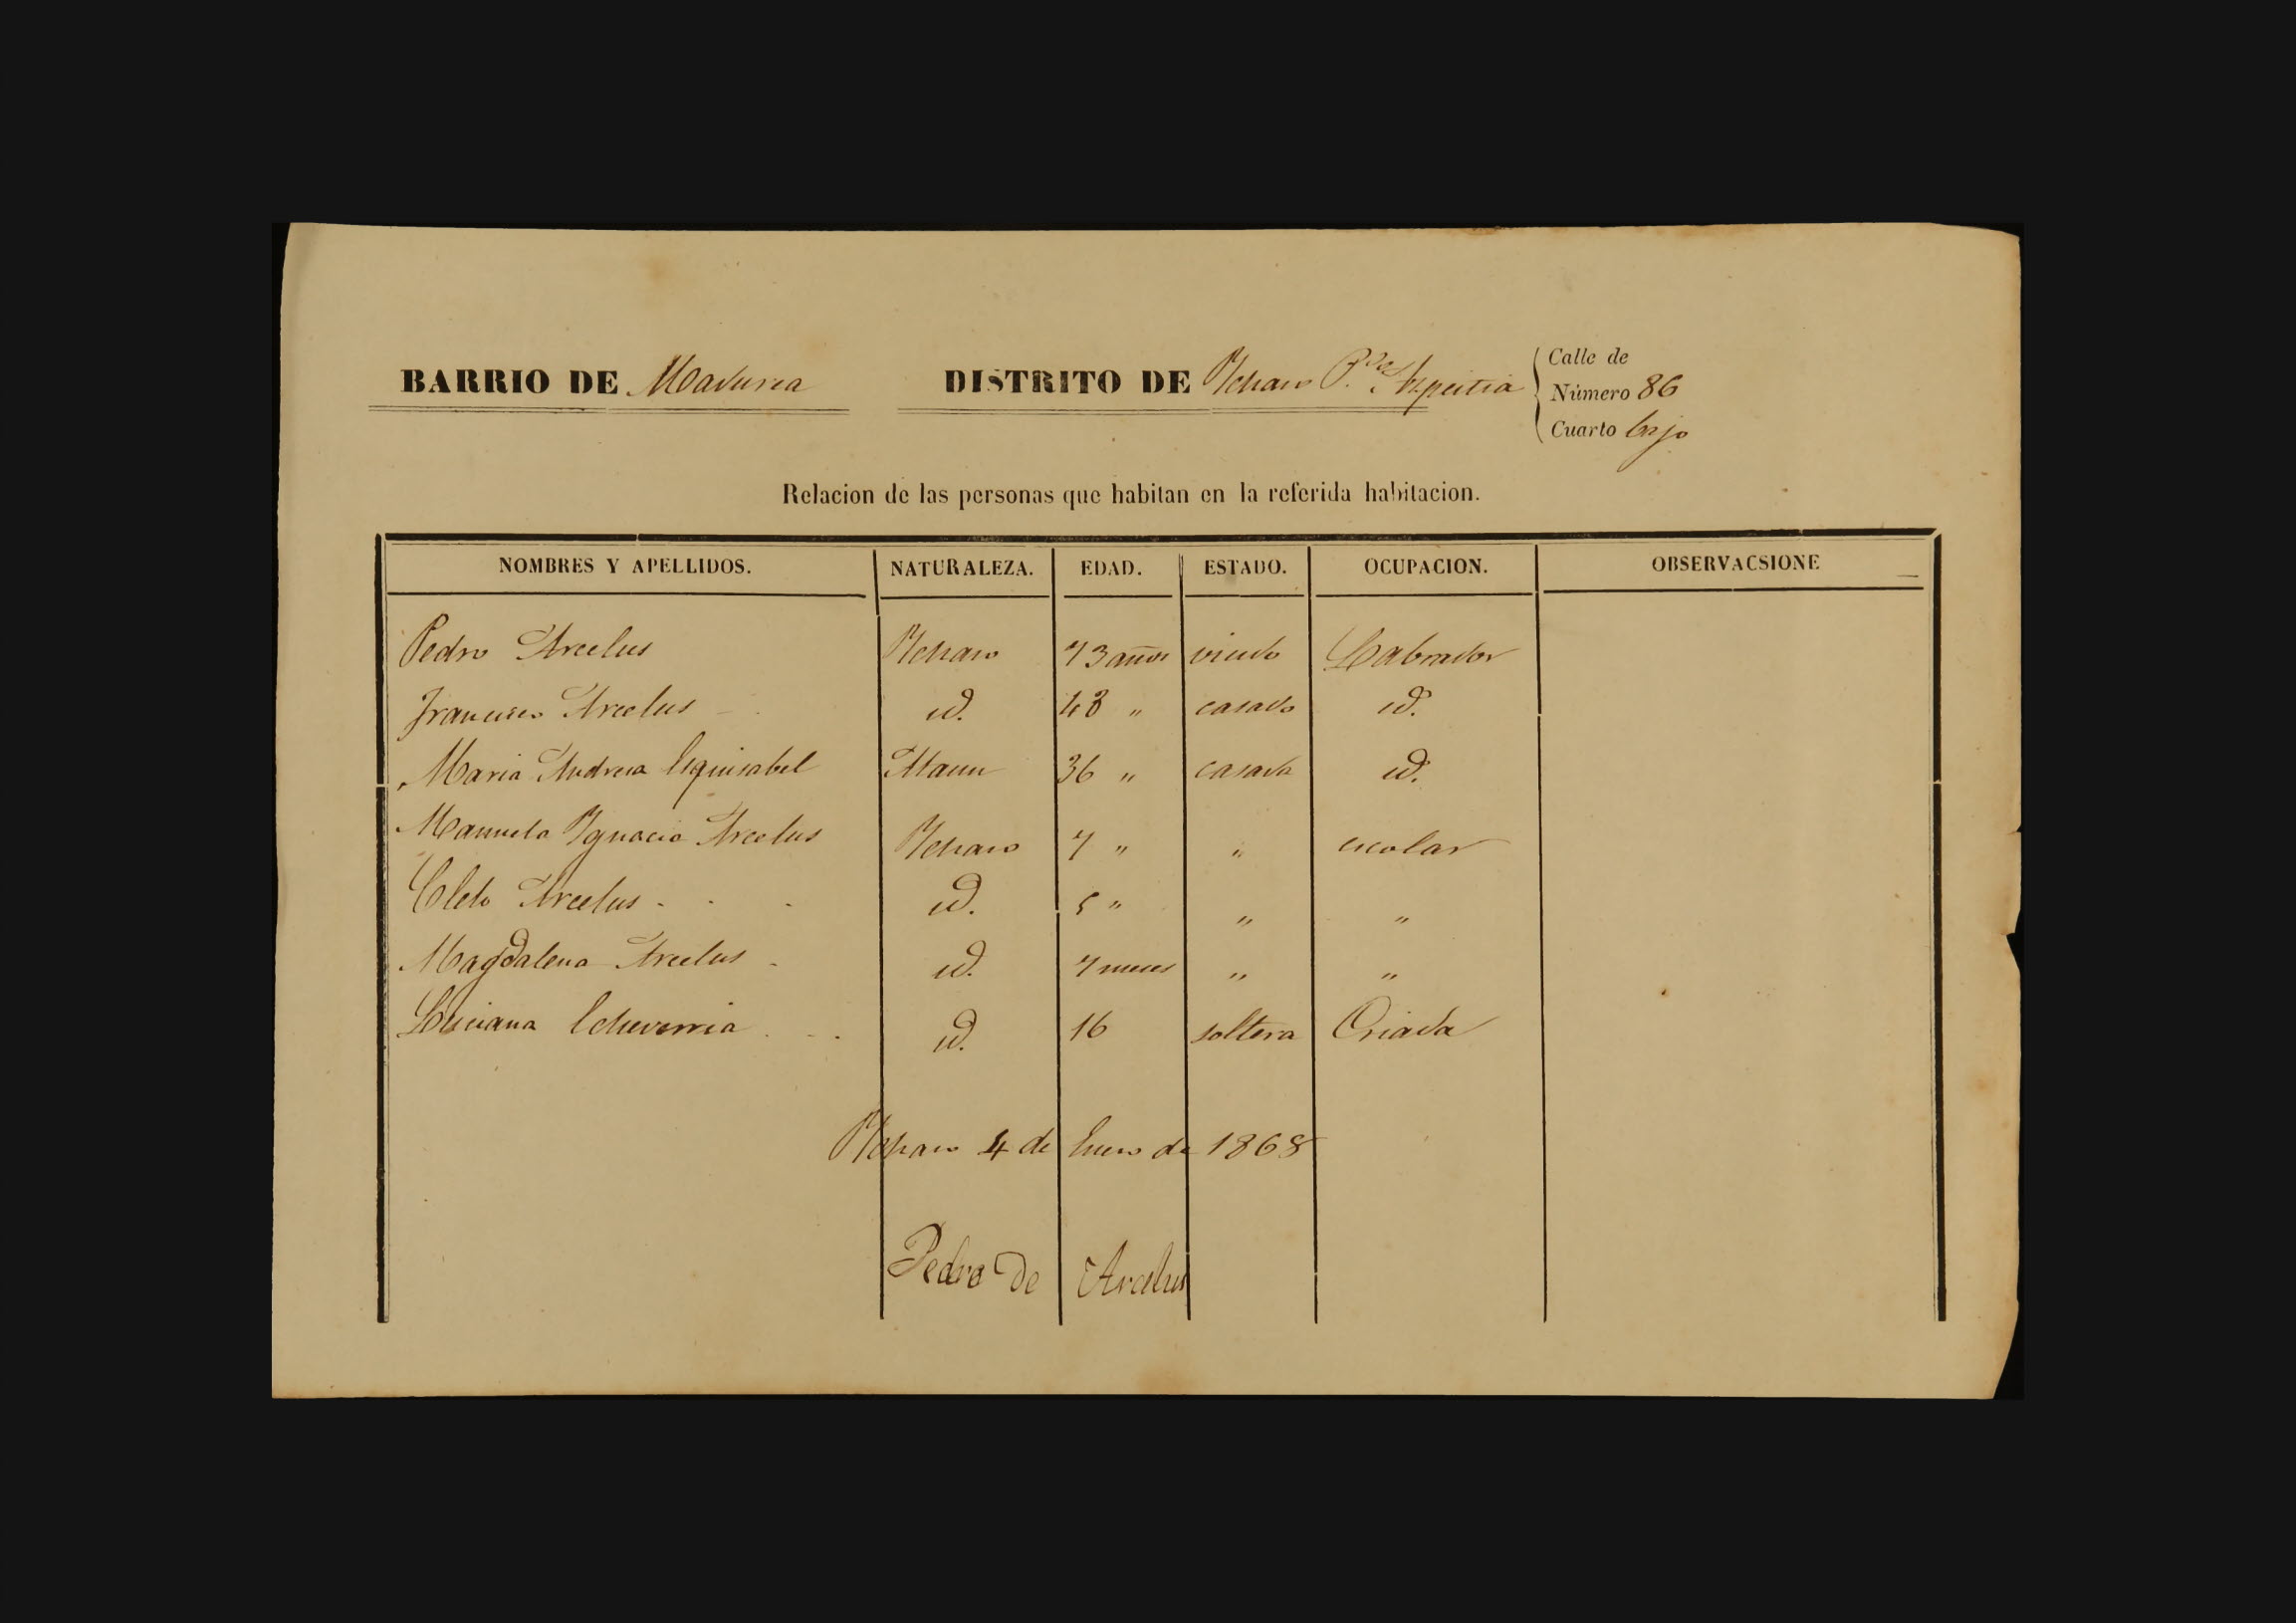 BARRIO DE Madurea DISTRITO DE Ychaso P.do Azpeitia
Calle de
Número 86
Cuarto bajo
Relacion de las personas que habitan en la referida habitacion.
NOMBRES Y APELLIDOS. NATURALEZA. EDAD. ESTADO. OCUPACION. OBSERVACSIONE
Pedro Arcelus Ychaso 73 años viudo Labrador
Francisco Arcelus id. 43 " casado id.
Maria Andresa Eguisabel Ataun 36 " casada id.
Manuela Ygnacia Arcelus Ychaso 7 " " escolar
Cleto Arcelus id. 5 " " "
Magdalena Arcelus id. 7 meses " "
Luciana Echeverria id. 16 soltera Criada
Ychaso 4 de Enero de 1868
Pedro De Arcelus